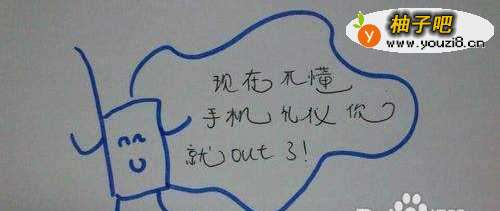 柚子吧
www.youzi8.cn
现在不懂
手机礼仪你
就out了!
Bai